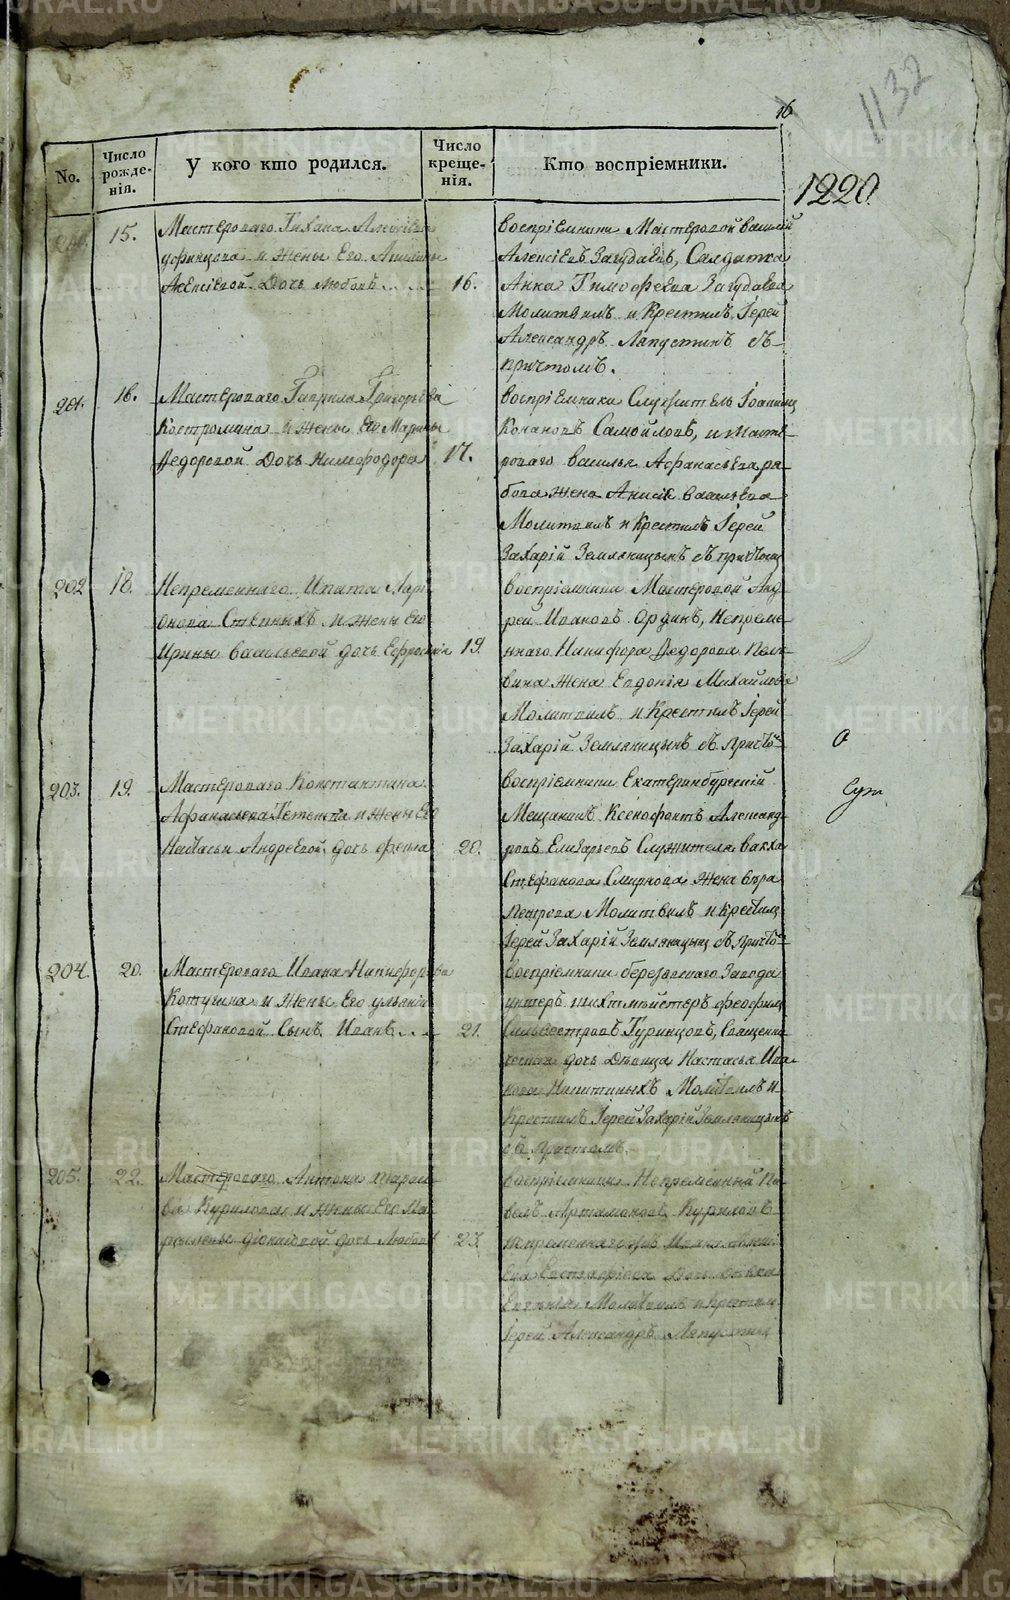 1132
16
1220
No.
Число рожде-нія.
У кого кто родился.
Число креще-нія.
Кто воспріемники.
15.
Мастероваго Тихона Алексѣева
и жены Его
Алексѣевой Дочь Любовь
16.
воспріемники Мастеровой василій
Алексѣевъ Загудаевъ, Салдатка
Анна Тимофеева Загудаева
Молитвилъ и Крестилъ Іерей
Александръ Ляпустинъ съ
причтомъ.
201.
16.
Мастероваго Гаврила Григорьева
Костромина и жены Его Марины
Федоровой Дочь Нимфодора
17.
воспріемники Служитель Іоаникій
Самойловъ, и Масте-
роваго василья Афанасьева ря-
бова жена Анисія васильева
Молитвилъ и Крестилъ Іерей
Захарій Земляницынъ съ причтомъ
202
18.
Непременнаго Ипата Лари-
онова и жены Его
Ирины васильевой дочь Ефросинія
19.
воспріемники Мастеровой Анд-
рей Ивановъ Ординъ, Непреме-
ннаго Никифора Федорова
жена Евдокія Михайлова
Молитвилъ и Крестилъ Іерей
Захарій Земляницынъ съ Причто-
203.
19.
Мастероваго Константина
Афанасьева и жены Его
Настасьи Андреевой дочь Фекла
20.
воспріемники Екатеринбургскій
Мещанинъ Ксенофонтъ Александ-
ровъ Елизарьевъ Служителя вакха
Стефанова Смирнова жена вѣра
Петрова Молитвилъ и Крестилъ
Іерей Захарій Земляницынъ съ Причто-
204.
20.
Мастероваго Ивана Никифорова
Котугина и жены Его ульяніи
Стефановой Сынъ Иванъ
21.
воспріемники березовскаго Завода
унтеръ шихтмейстеръ феофилъ
Сильвестровъ Гуринцовъ, Священни-
дочь Дѣвица Настасья Ива-
нова Никитиныхъ Молитвилъ и
Крестилъ Іерей Захарій Земляницынъ
съ Причтомъ.
205.
22.
Мастероваго Антона
Курилова и жены Его Ма-
дочь Любовь
23.
воспріемники Непременный Па-
велъ Артамоновъ Куриловъ
Непременнаго
дочь дѣвка
Молитвилъ и Крестилъ
Іерей Александръ Ляпустинъ
METRIKI.GASO-URAL.RU